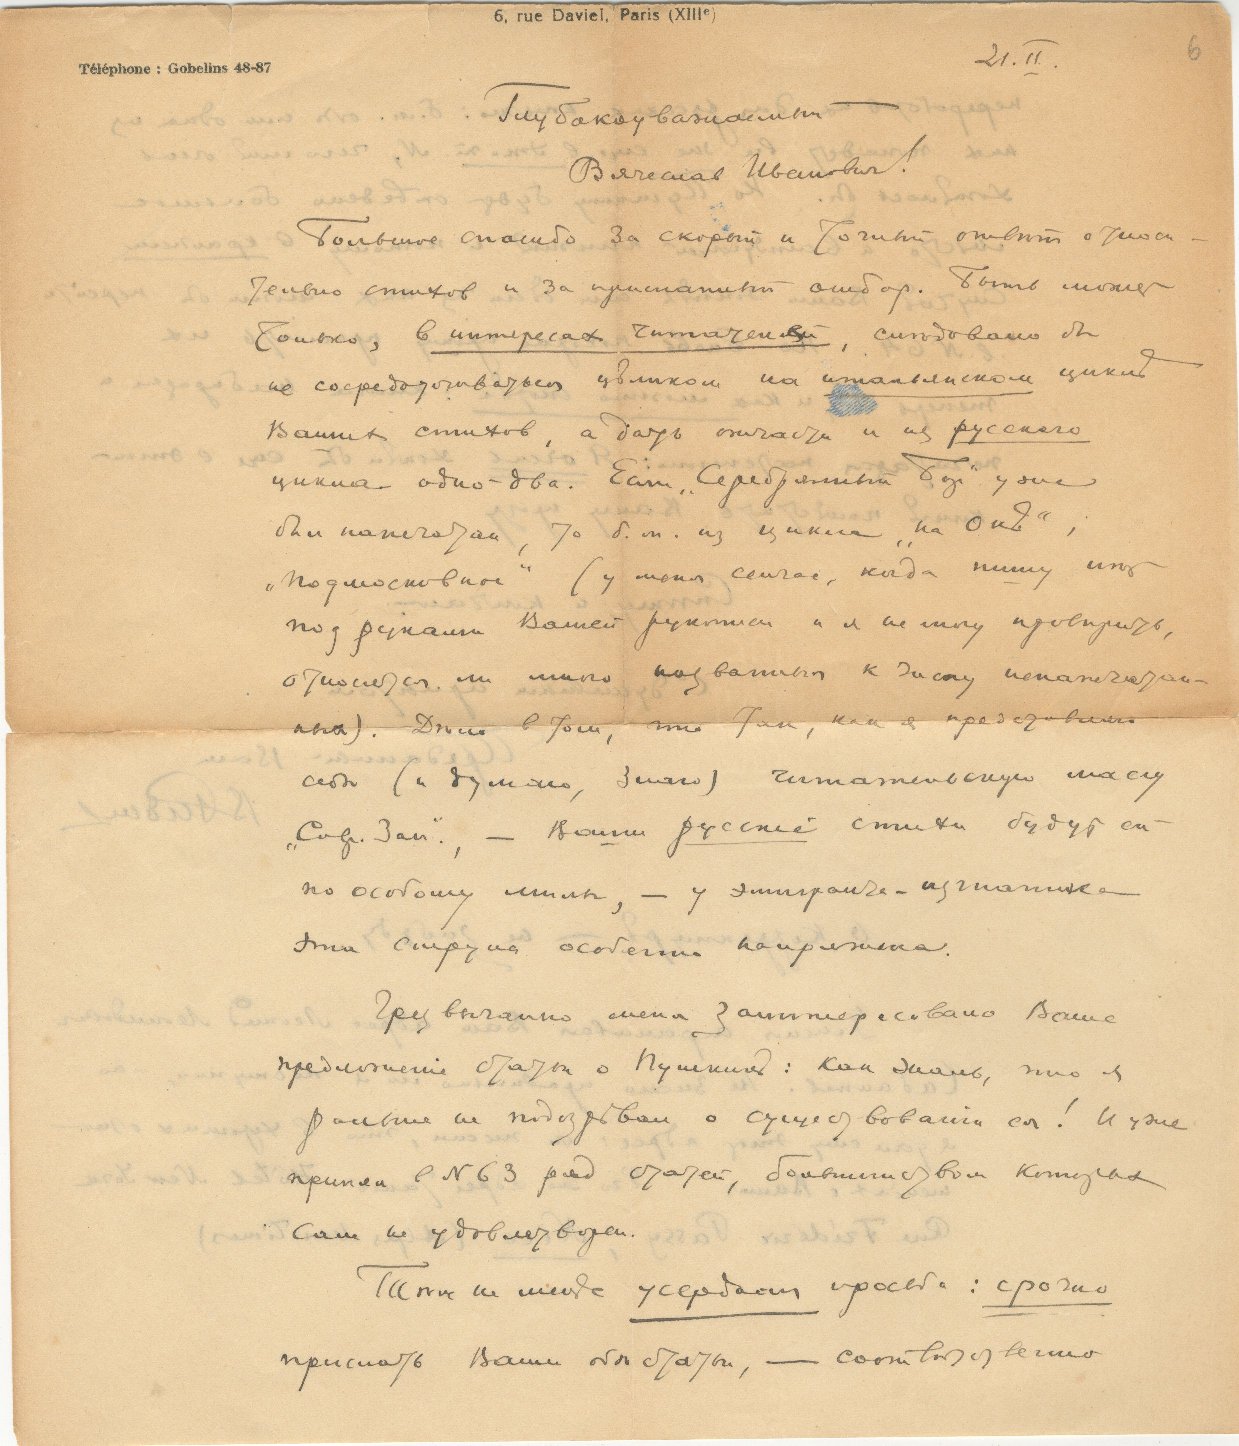 6, rue Daviel, Paris (XIIIᵉ)
Téléphone : Gobelins 48-87
21.II.
6
Глубокоуважаемый
Вячеслав Иванович!
Большое спасибо за скорый и точный ответ относи-
тельно стихов и за присланный отбор. Быть может
только, в интересах читателей, следовало бы
не сосредоточиваться цѣликом на итальянском циклѣ
Ваших стихов, а дать отчасти и из русского
цикла одно-два. Если „Серебряный Бор" уже
был напечатан, то б.м. из цикла „на Окѣ",
„Подмосковное" (у меня сейчас, когда пишу нет
под руками Вашей рукописи и я не могу провѣрить,
относятся ли мною названныя к числу ненапечатан-
ных). Дѣло в том, что так, как я представляю
себѣ (и думаю, знаю) читательскую массу
„Совр. Зап.", — Ваши русскiе стихи будут ей
по особому милы, — у эмигранта-изгнанника
эта струна особенно напряжена.
Чрезвычайно меня заинтересовало Ваше
предложенiе статьи о Пушкинѣ: как жаль, что я
раньше не подозрѣвал о существованiи ея! И уже
принял в № 63 ряд статей, большинством которых
сам не удовлетворен.
Тѣм не менѣе усердная просьба: срочно
прислать Ваши обѣ статьи, — соотвѣтственно